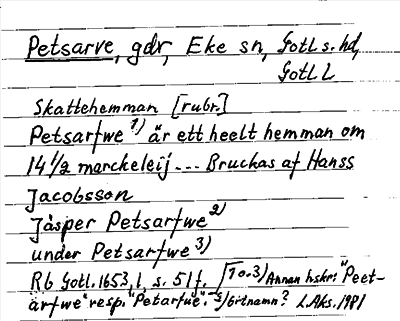 Petsarve, gdr, Eke sn, Gotl s. hd,
Gotl L
Skattehemman [rubr.]
Petsarfwe 1) är ett heelt hemman om
14 1/2 marckeleij --- Bruckas af Hanss
Jacobsson
Jåsper Petsarfwe 2)
under Petsarfwe 3)
Rb Gotl. 1653, 1, s. 51 f. [1 o. 3) Annan hskr: "Peet-
ärfwe" resp. "Petarfue". 2) Gårtnamn? L. Aks. 1981